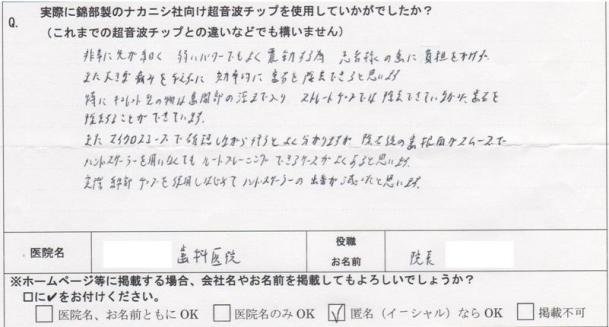 Q. 実際に錦部製のナカニシ社向け超音波チップを使用していかがでしたか？
（これまでの超音波チップとの違いなどでも構いません）
非常に先が細く 弱いパワーでもよく震動する為 患者様の歯に負担をかけず
また大きな痛みを与えずに 効率的に歯石を除去できると思います
特に キュレット型の物は歯間部の深まで入り ストレートチップでは除去できていなかった歯石を
除去することができています。
またマイクロスコープで確認しながら行うとよく分かりますが 除去後の歯根面がスムーズで
ハンドスケーラーを用いなくても ルートプレーニングできるケースがよくあると思います。
実際 錦部チップを使用しはじめて ハンドスケーラーの出番が減ったと思います。
医院名 歯科医院 役職 お名前 院長
※ホームページ等に掲載する場合、会社名やお名前を掲載してもよろしいでしょうか？
口に✔をお付けください。
□ 医院名、お名前ともに OK □ 医院名のみ OK ☑ 匿名（イーシャル）なら OK □ 掲載不可